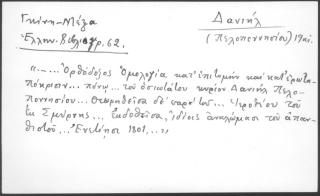 Γκίνη-Μέξα
Ἑλλην. Βιβλιογρ. 62.
Δανιήλ
(Πελοποννησίου) 19αι.
"... Ὀρθόδοξος Ὁμολογία κατ' ἐπιτομήν καὶ κατ' ἐρώτα-
πόκρισιν... τοῦ ὁσιωτάτου κυρίου Δανιήλ Πελο-
ποννησίου... Θεωρηθεῖσα δέ παρά τοῦ... Ἱεροθέου τοῦ
ἐκ Σμύρνης... Ἐκδοθεῖσα, ἰδίοις ἀναλώμασι τοῦ
... Ἐνετίῃσι 1801,..."